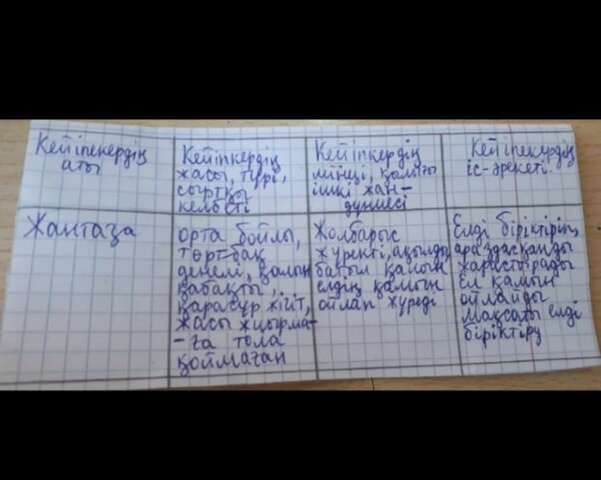 Кейіпенердің
аты
Кейіпкердің
жасы, түрі,
сыртқы
келбеті
Кейіпкердің
мінезі, қалыпы
ішкі жан-
дүниесі
Кейіпекердің
іс-әрекеті.
Жантаза
орта бойлы,
төртбақ
денелі, қалың
қабақты,
қарасұр жігіт,
жасы жиырма-
-ға тола
қоймаған
Жолбарыс
жүректі, ақылды,
батыл қайын
елдің қамын
ойлап жүреді
Елді біріктіріп,
араздасқанды
жарастырады
Ел қамын
ойлайды
мақсаты елді
біріктіру